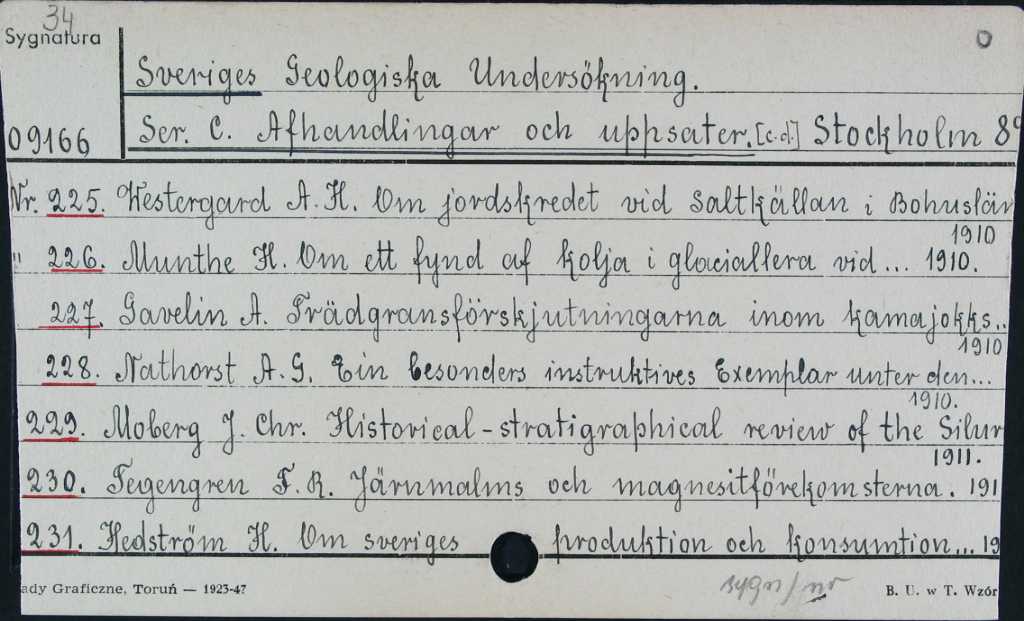 34
Sygnatura
O
Sveriges Geologiska Undersökning.
09166
Ser. C. Afhandlingar och uppsater. [c.d.] Stockholm 8°
Nr. 225. Westergard A. H. Om jordskredet vid Saltkällan i Bohuslän
1910
" 226. Munthe H. Om ett fynd af kolja i glaciallera vid... 1910.
227. Gavelin A. Trädgransförskjutningarna inom kamajokks..
1910
228. Nathorst A. G. Ein besonders instruktives Exemplar unter den...
1910.
229. Moberg J. Chr. Historical-stratigraphical review of the Silur
1911.
230. Tegengren F. R. Järnmalms och magnesitförekomsterna. 191
231. Hedström H. Om sveriges produktion och konsumtion... 19
ady Graficzne, Toruń — 1923-47
sygn/nr
B. U. w T. Wzór